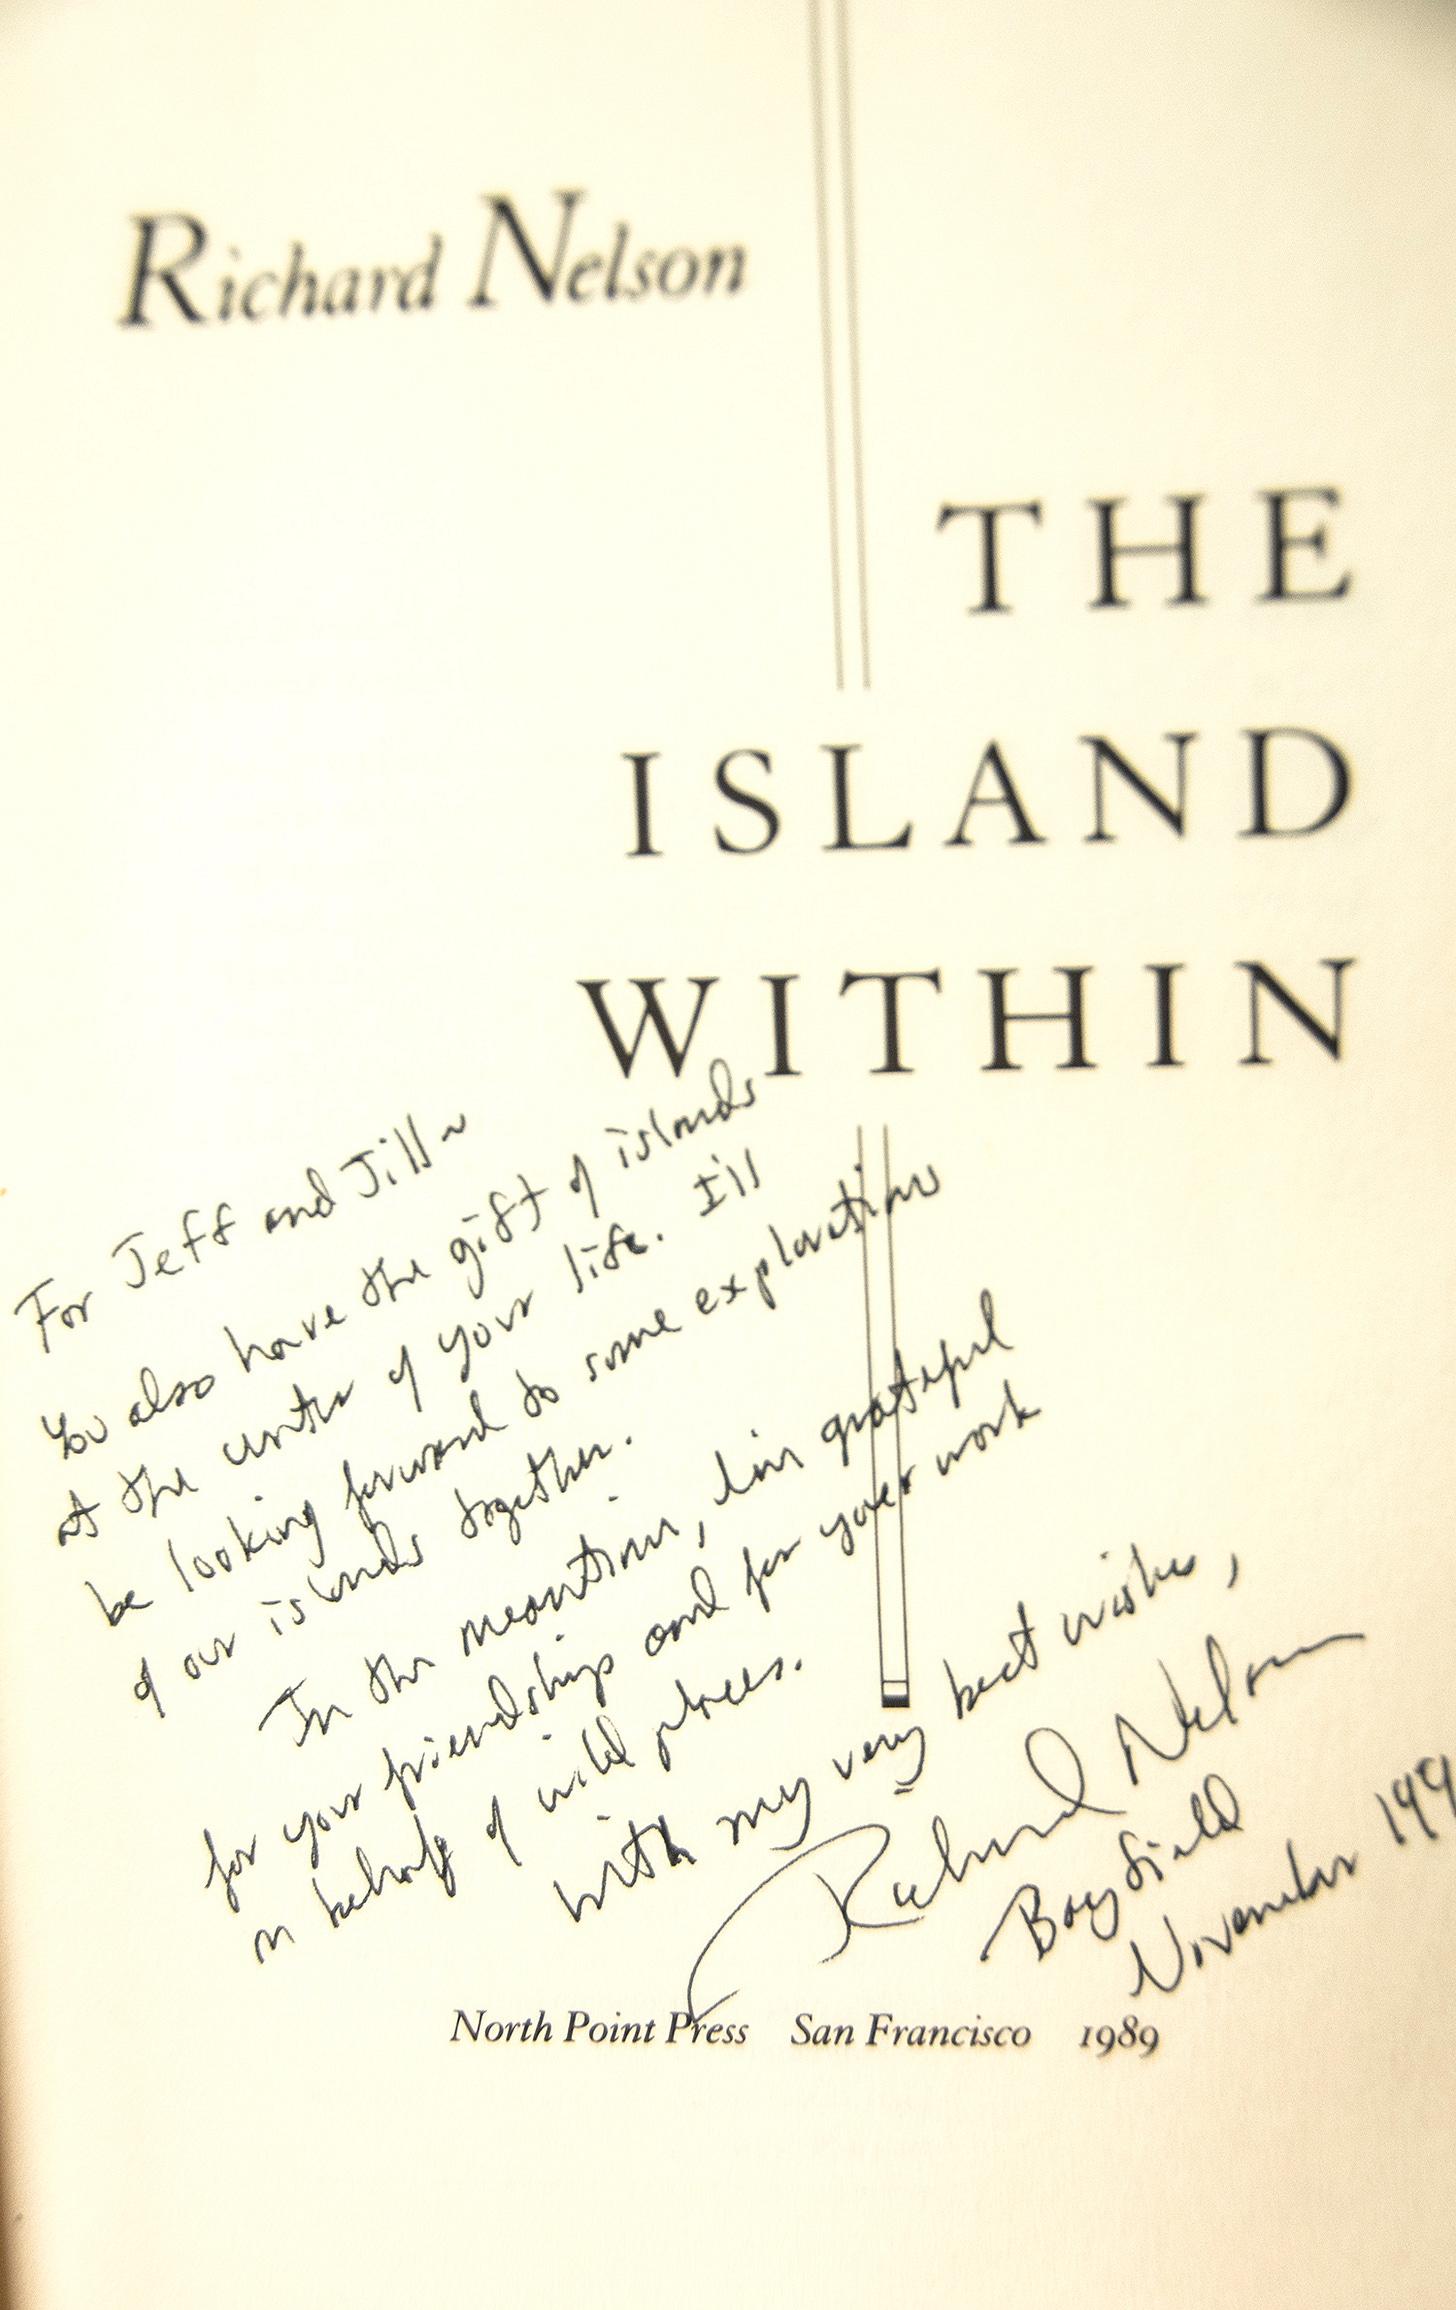 Richard Nelson
THE
ISLAND
WITHIN
For Jeff and Jill ~
You also have the gift of islands
at the center of your life. I'll
be looking forward to some exploration
of our islands together.
In the meantime, I'm grateful
for your friendship and for your work
on behalf of wild places.
With my very best wishes,
Richard Nelson
Bayfield
November 199
North Point Press San Francisco 1989